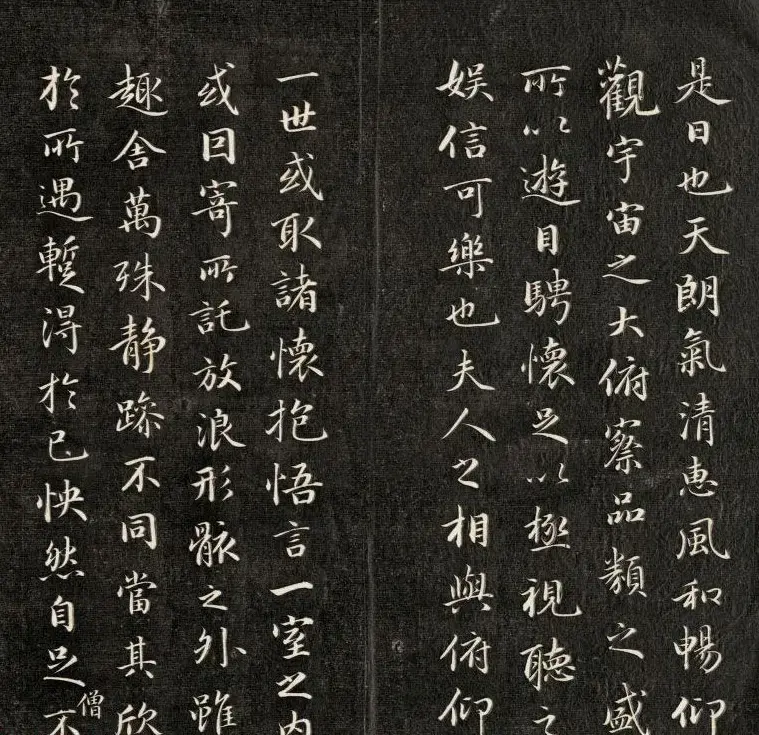 是日也天朗氣清惠風和暢仰
觀宇宙之大俯察品類之盛
所以遊目騁懷足以極視聽之
娛信可樂也夫人之相與俯仰
一世或取諸懷抱悟言一室之内
或因寄所託放浪形骸之外雖
趣舍萬殊静躁不同當其欣
於所遇暫得於己怏然自足不
僧